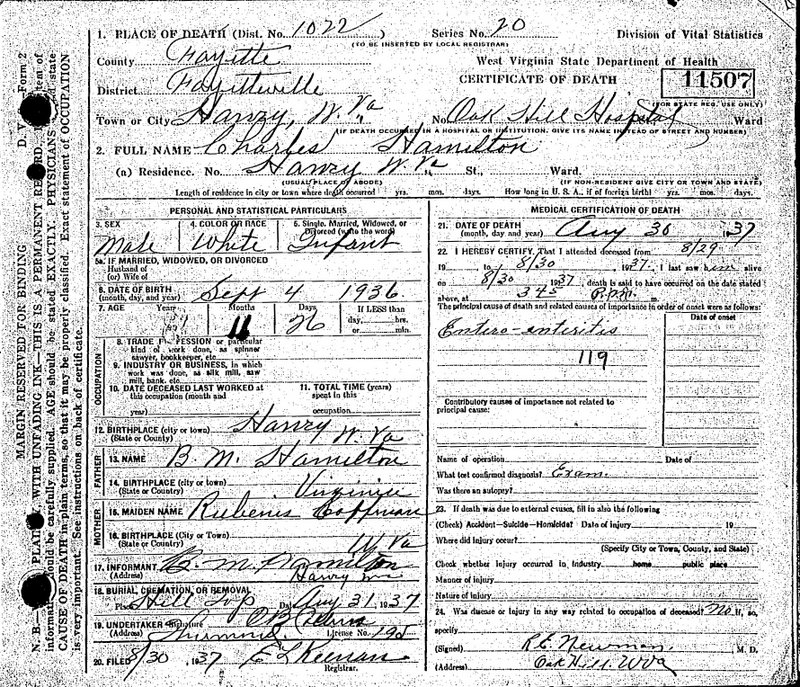 1. PLACE OF DEATH (Dist. No. 1022 Series No. 20 Division of Vital Statistics
(TO BE INSERTED BY LOCAL REGISTRAR)
County Fayette West Virginia State Department of Health
CERTIFICATE OF DEATH 11507
District Fayetteville
(FOR STATE REG. USE ONLY)
Town or City W. Va No. Oak Hill Hospital Ward
(IF DEATH OCCURRED IN A HOSPITAL OR INSTITUTION, GIVE ITS NAME INSTEAD OF STREET AND NUMBER)
2. FULL NAME Charles Hamilton
(a) Residence. No. W. Va St., Ward.
(USUAL PLACE OF ABODE) (IF NON-RESIDENT GIVE CITY OR TOWN AND STATE)
Length of residence in city or town where death occurred yrs. mos. days. How long in U. S. A., if of foreign birth? yrs. mos. days.
PERSONAL AND STATISTICAL PARTICULARS
3. SEX 4. COLOR OR RACE 5. Single, Married, Widowed, or Divorced (write the word)
Male White Infant
5a. IF MARRIED, WIDOWED, OR DIVORCED
Husband of
(or) Wife of
6. DATE OF BIRTH (month, day, and year) Sept 4 1936
7. AGE Years Months Days If LESS than
11 26 day, hrs.
or min.
8. TRADE PROFESSION or particular
kind of work done, as spinner
sawyer, bookkeeper, etc.
9. INDUSTRY OR BUSINESS, in which
work was done, as silk mill, saw
mill, bank, etc.
10. DATE DECEASED LAST WORKED at
this occupation (month and
year)
11. TOTAL TIME (years)
spent in this
occupation.
OCCUPATION
12. BIRTHPLACE (city or town)
(State or County) W. Va
FATHER
13. NAME B. M. Hamilton
14. BIRTHPLACE (city or town)
(State or County) Virginia
MOTHER
15. MAIDEN NAME Coffman
16. BIRTHPLACE (city or town)
(State or County) W Va
17. INFORMANT B. M. Hamilton
(Address)
18. BURIAL, CREMATION, OR REMOVAL
Place Hill Top Date Aug 31 1937
19. UNDERTAKER Signature
License No. 195
20. FILED 8/30 1937 E L Keenan
Registrar.
MEDICAL CERTIFICATION OF DEATH
21. DATE OF DEATH
(month, day and year) Aug 30 1937
22. I HEREBY CERTIFY, That I attended deceased from 8/29
19 to 8/30 1937. I last saw him alive
on 8/30 1937, death is said to have occurred on the date stated
above, at 345 P.m.
The principal cause of death and related causes of importance in order of onset were as follows:
Date of onset
Entero-enteritis
119
Contributory causes of importance not related to
principal cause:
Name of operation Date of
What test confirmed diagnosis? Exam.
Was there an autopsy?
23. If death was due to external causes, fill in also the following
(Check) Accident—Suicide—Homicide? Date of injury 19
Where did injury occur?
(Specify City or Town, County, and State)
Check whether injury occurred in Industry. home public place
Manner of injury
Nature of injury
24. Was disease or injury in any way related to occupation of deceased? No If so,
specify
(Signed) R.E. Newman M. D.
(Address) Oak Hill W Va
D. V. Form 2
MARGIN RESERVED FOR BINDING
N. B.— WITH UNFADING INK—THIS IS A PERMANENT RECORD. item of
information should be carefully supplied. AGE should be stated EXACTLY. PHYSICIANS state
CAUSE OF DEATH in plain terms, so that it may be properly classified. Exact statement of OCCUPATION
is very important. See instructions on back of certificate.